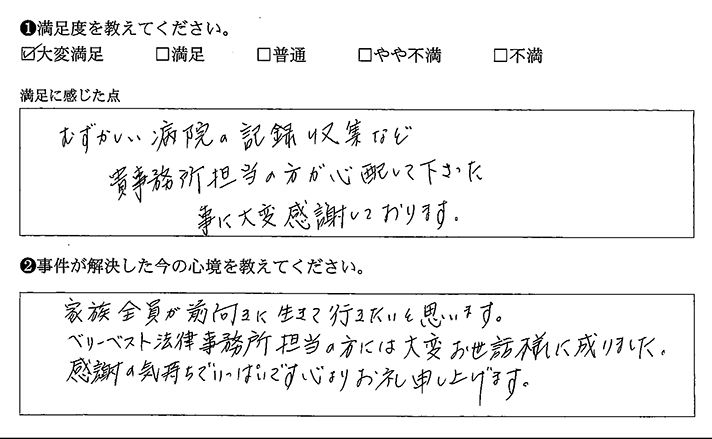 ❶満足度を教えてください。
☑大変満足 □満足 □普通 □やや不満 □不満
満足に感じた点
むずかしい病院の記録収集など
貴事務所担当の方が心配して下さった
事に大変感謝しております。
❷事件が解決した今の心境を教えてください。
家族全員が前向きに生きて行きたいと思います。
ベリーベスト法律事務所担当の方には大変お世話様に成りました。
感謝の気持ちでいっぱいです心よりお礼申し上げます。